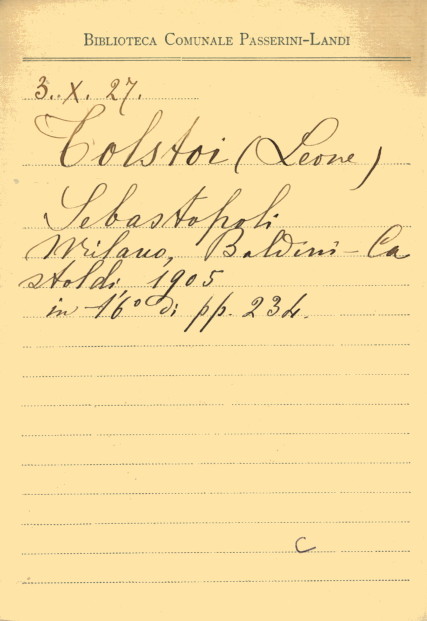 BIBLIOTECA COMUNALE PASSERINI-LANDI
3. X. 27.
Tolstoi (Leone)
Sebastopoli
Milano, Baldini-Ca
stoldi, 1905
in 16° di pp. 234.
C